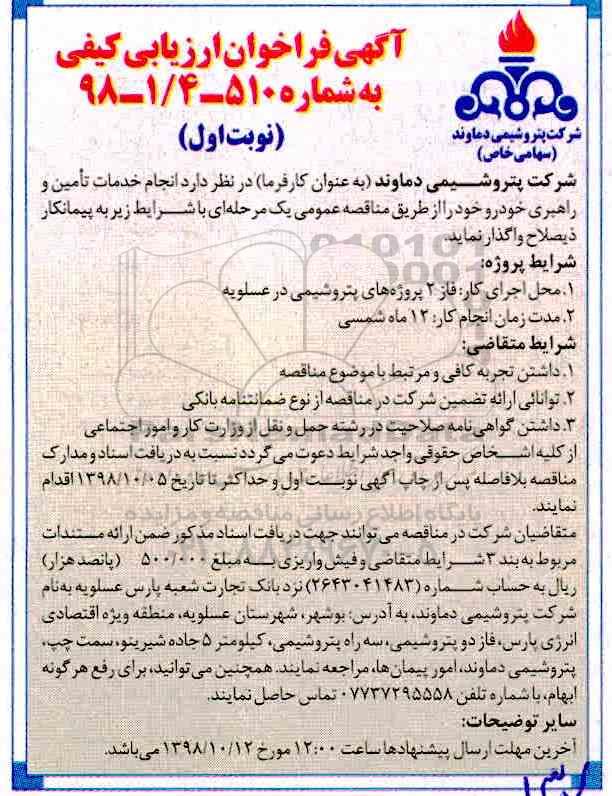 آگهی فراخوان ارزیابی کیفی
به شماره ۵۱۰-۱/۴-۹۸
(نوبت اول)
شرکت پتروشیمی دماوند
(سهامی خاص)
شرکت پتروشیمی دماوند (به عنوان کارفرما) در نظر دارد انجام خدمات تأمین و
راهبری خودرو خود را از طریق مناقصه عمومی یک مرحله‌ای با شرایط زیر به پیمانکار
ذیصلاح واگذار نماید.
شرایط پروژه:
۱. محل اجرای کار: فاز ۲ پروژه‌های پتروشیمی در عسلویه
۲. مدت زمان انجام کار: ۱۲ ماه شمسی
شرایط متقاضی:
۱. داشتن تجربه کافی و مرتبط با موضوع مناقصه
۲. توانائی ارائه تضمین شرکت در مناقصه از نوع ضمانتنامه بانکی
۳. داشتن گواهی‌نامه صلاحیت در رشته حمل و نقل از وزارت کار و امور اجتماعی
از کلیه اشخاص حقوقی واجد شرایط دعوت می گردد نسبت به دریافت اسناد و مدارک
مناقصه بلافاصله پس از چاپ آگهی نوبت اول و حداکثر تا تاریخ ۱۳۹۸/۱۰/۰۵ اقدام
نمایند.
متقاضیان شرکت در مناقصه می‌توانند جهت دریافت اسناد مذکور ضمن ارائه مستندات
مربوط به بند ۳ شرایط متقاضی و فیش واریزی به مبلغ ۵۰۰/۰۰۰ (پانصد هزار)
ریال به حساب شماره (۲۶۴۳۰۴۱۴۸۳) نزد بانک تجارت شعبه پارس عسلویه به‌نام
شرکت پتروشیمی دماوند، به آدرس: بوشهر، شهرستان عسلویه، منطقه ویژه اقتصادی
انرژی پارس، فاز دو پتروشیمی، سه راه پتروشیمی، کیلومتر ۵ جاده شیرینو، سمت چپ،
پتروشیمی دماوند، امور پیمان ها، مراجعه نمایند. همچنین می‌توانید، برای رفع هر گونه
ابهام، با شماره تلفن ۰۷۷۳۷۲۹۵۵۵۸ تماس حاصل نمایند.
سایر توضیحات:
آخرین مهلت ارسال پیشنهادها ساعت ۱۲:۰۰ مورخ ۱۳۹۸/۱۰/۱۲ می‌باشد.